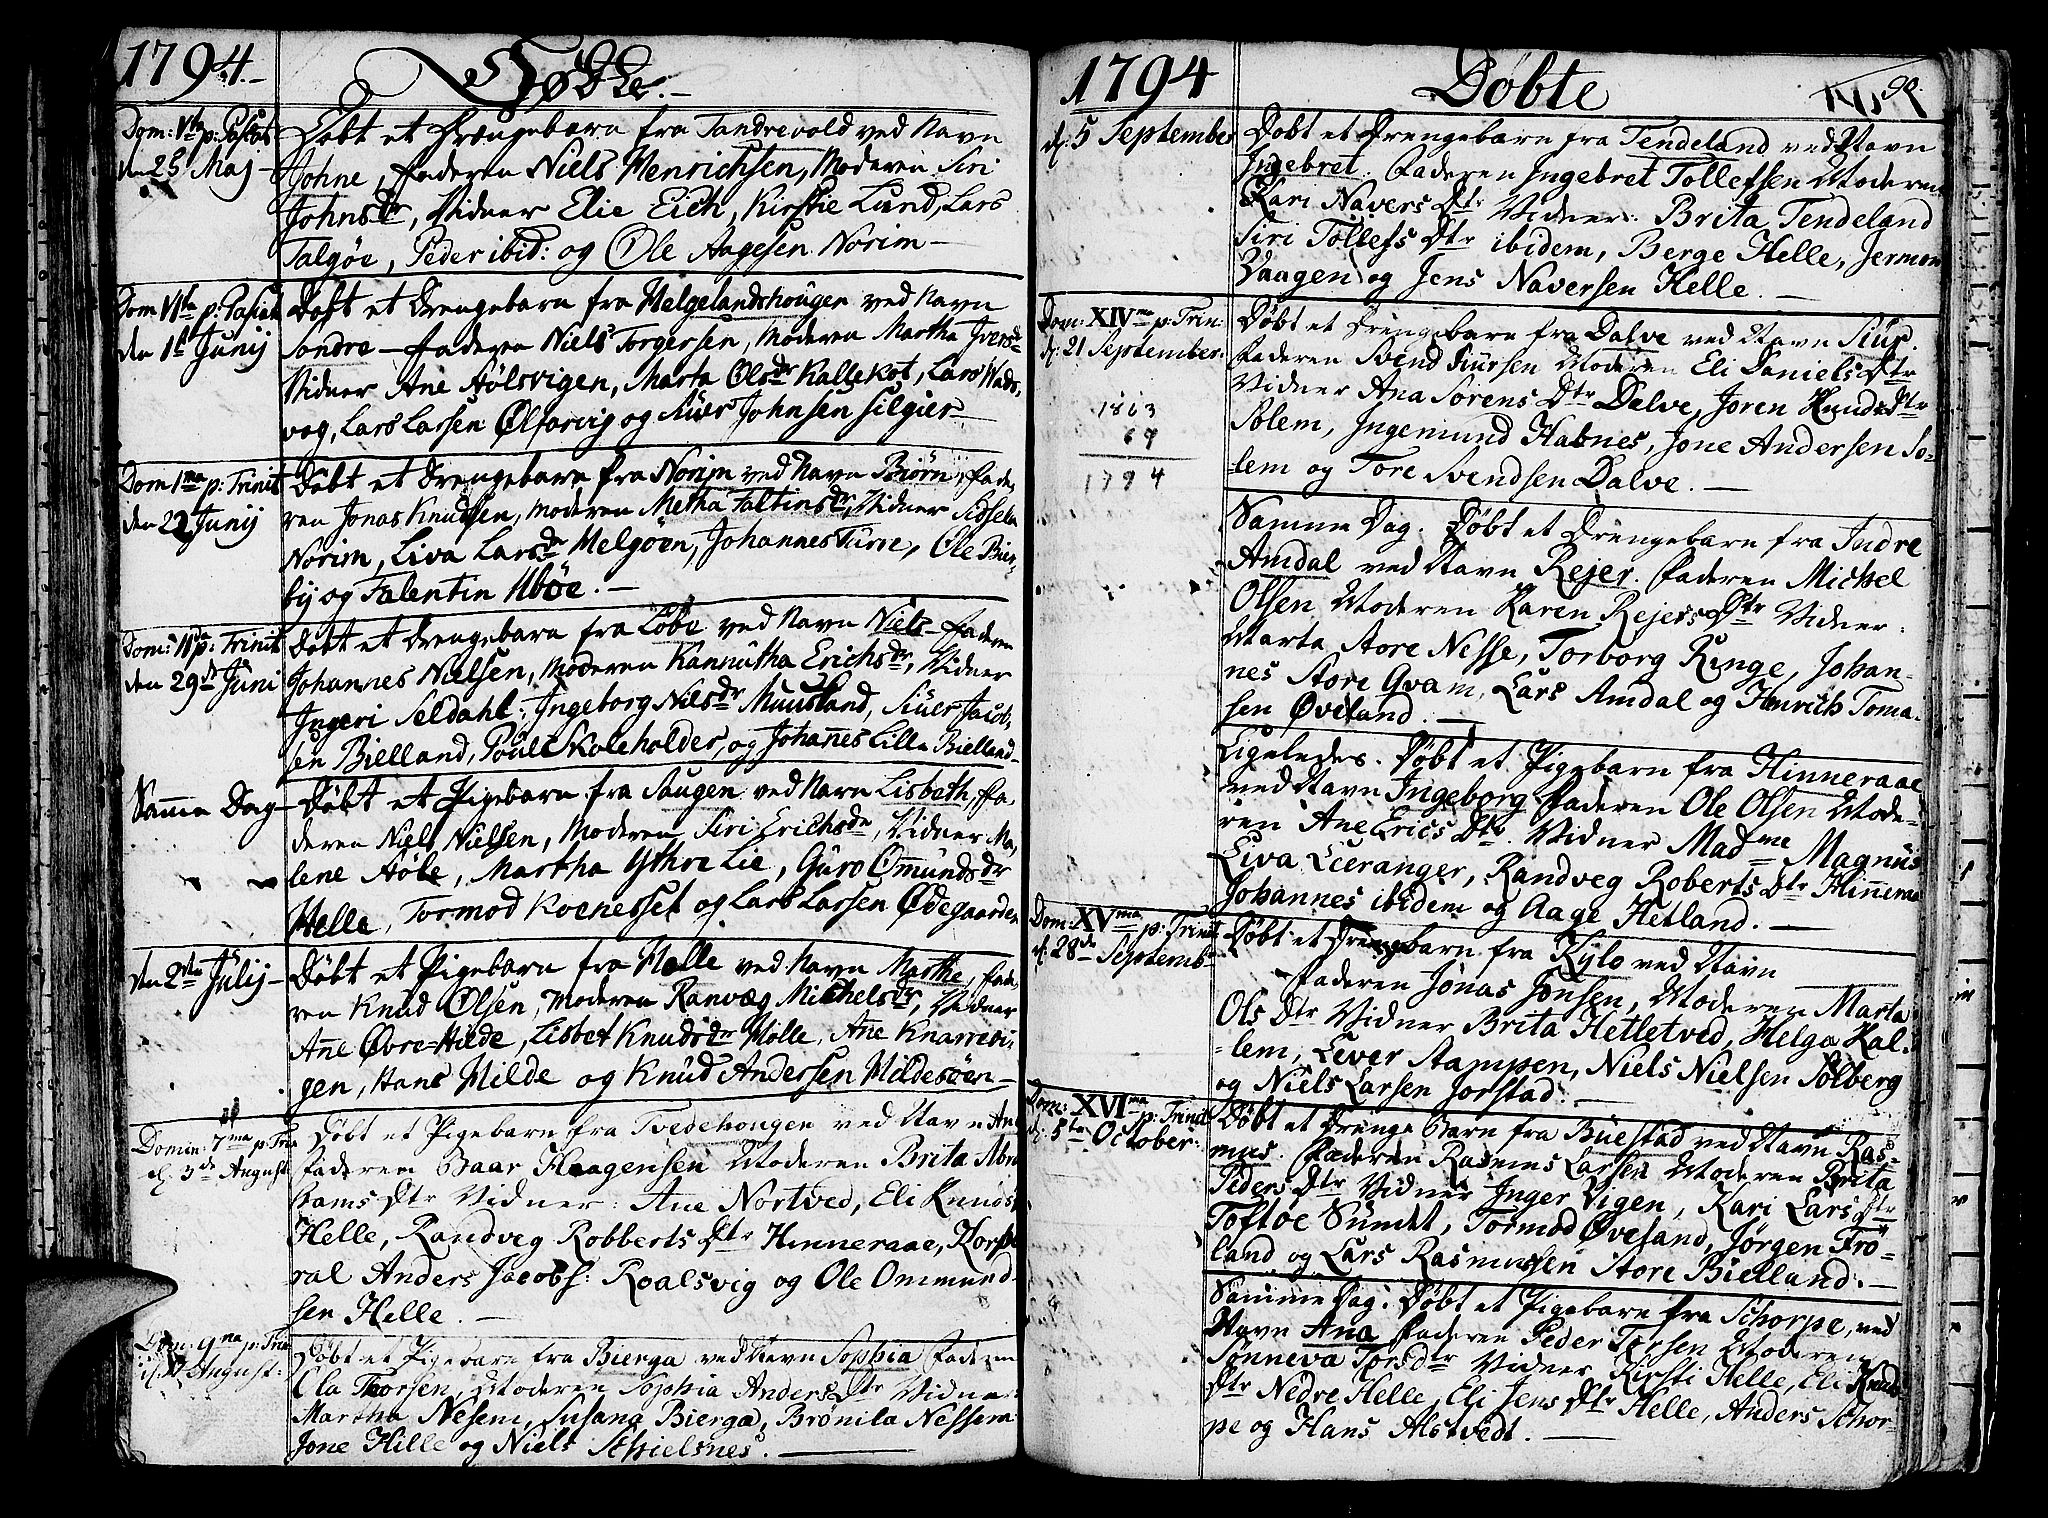 1794.-
Døbte.-
Dom: Vta p: Pasch
den 25 Maj
Døbt et Drængebarn fra Tandrevold ved Navn
Johne, Faderen Niels Henrichsen, Moderen Siri
Johnsdr, Vidner Elie Eich, Kirstie Lund, Lars
Talgøe, Peder ibid: og Ole Aagesen Norim-
Dom VIta p: Pasch
den 1st Junij
Døbt et Drengebarn fra Helgelandshougen ved Navn
Sondre - Faderen Niels Torgersen, Moderen Martha Ivers
Vidner Ane Aölsvigen, Marta Olsdr Kallekot, Lars Wads-
vog, Lars Larsen Ølfarvig og Siver Johnsen Silgier-
Dom 1ma p: Trinit
den 22 Junij
Døbt et Drengebarn fra Norim ved Navn Biörn, Fade-
ren Jonas Knudsen, Moderen Metha Faltinsdr, Vidner Sidsela
Norim, Liva Larsdr Helgöen, Johannes Turre, Ole Bin-
by og Falentin Ubøe.-
Dom: IIda p: Trinit
den 29d Juni
Døbt et Drengebarn fra Løbe ved Navn Niels - Faderen
Johannes Nielsen, Moderen Kannutha Erichsdr, Vidner
Ingeri Seldahl, Ingeborg Nielsdr Muusland, Siuer Jacob-
sen Bielland, Poul Skoleholder, og Johannes Lille Bielland-
Samme Dag-
Døbt et Pigebarn fra Saugen ved Navn Lisbeth, Fa-
deren Niels Nielsen, Moderen Siri Erichsdr, Vidner Ma-
lene Aöbe, Martha Ythre Lie, Guro Omundsdr
Helle, Tormod Koenesset og Lars Larsen Ødegaarden
den 2den Julij-
Døbt et Pigebarn fra Molle ved Navn Marthe, Fade-
ren Knud Olsen, Moderen Ranvæg Michelsdr, Vidner
Anne Øvre-Hilde, Lisbet Knudsdr Molle, Ane Knarrevi-
gen, Hans Milde og Knud Andersen Mildesöen-
Domin: 7ma p Trin
d. 3de August
Døbt et Pigebarn fra Tvedehougen ved Navn Ane
Faderen Baar Haagensen Moderen Brita Abra
hams Dtr Vidner: Ane Nortved, Eli Knuds
Helle, Randveg Robberts Dtr Hinneraae, Korpo
ral Anders Jacobs: Roalsvig og Ole Ommund-
sen Helle.-
Dom: 9ma p: Trin
August:
Døbt et Pigebarn fra Bierga ved Navn Sophia Faderen
Ola Thorsen, Moderen Sophia Anders Dtr Vidner
Martha Nesem, Susana Bierga, Brönila Nessem
Jone Hille og Niels Schielsnes.
1794
Døbte
90.
d. 5 September
Døbt et Drengebarn fra Tendeland ved Navn
Ingebret. Faderen Ingebret Tollefsen Moderen
Kari Navers Dtr Vidner: Brita Tendeland
Siri Tollefs Dtr ibidem, Berge Helle, Jermon
Vaagen og Jens Naversen Helle.-
Dom: XIVme p: Trin:
d. 21 September:
1863
69
1794
Døbt et Drengebarn fra Dalve ved Navn Siur.
Faderen Svend Siursen Moderen Eli Daniels Dtr
Vidner Ana Sorens Dtr Dalve, Joren Knuds Dtr
Bolem, Ingemund Habnes, Jone Andersen So-
-lem og Tore Svendsen Dalve.-
Samme Dag. Døbt et Drengebarn fra Indre
Amdal ved Navn Rejer. Faderen Michel
Olsen Moderen Karen Rejers Dtr Vidner:
Marta Store Nesse, Torborg Ringe, Johan-
nes Store Gvam, Lars Amdal og Henrich Toma-
sen Øveland.-
Ligeledes. Døbt et Pigebarn fra Hinneraae
ved Navn Ingeborg Faderen Ole Olsen Mode-
ren Ane Erics Dtr. Vidner Madme Magnus
Liva Lieranger, Randveg Roberts Dtr Hinneraae
Johannes ibidem og Aage Hetland.-
Dom: XVma p: Trinit
d. 28de Septembr
Døbt et Drengebarn fra Kylo ved Navn
Faderen Jonas Jonsen, Moderen Marta
Ols Dtr Vidner Brita Hetletved, Helga Hal-
-lem, Siver Stampen, Niels Nielsen Solberg
og Niels Larsen Jorstad.-
Dom: XVIma p: Trinit
d. 5te October:
Døbt et Drenge Barn fra Buestad ved Navn Ras-
mus. Faderen Rasmus Larsen Moderen Brita
Peders Dtr Vidner Inger Vigen, Kari Lars Dtr
Toftøe Sundet, Tormod Øveland, Jørgen Frö-
land og Lars Rasmussen Store Bielland.-
Samme Dag. Døbt et Pigebarn fra Schorpe, ved
Navn Ana Faderen Peder Torsen Moderen
Sønneva Torsdtr Vidner Kirsti Helle, Eli Knuds
Dtr Nedre Helle, Eli Jens Dtr Helle, Anders Schor-
pe og Hans Alstvedt.-